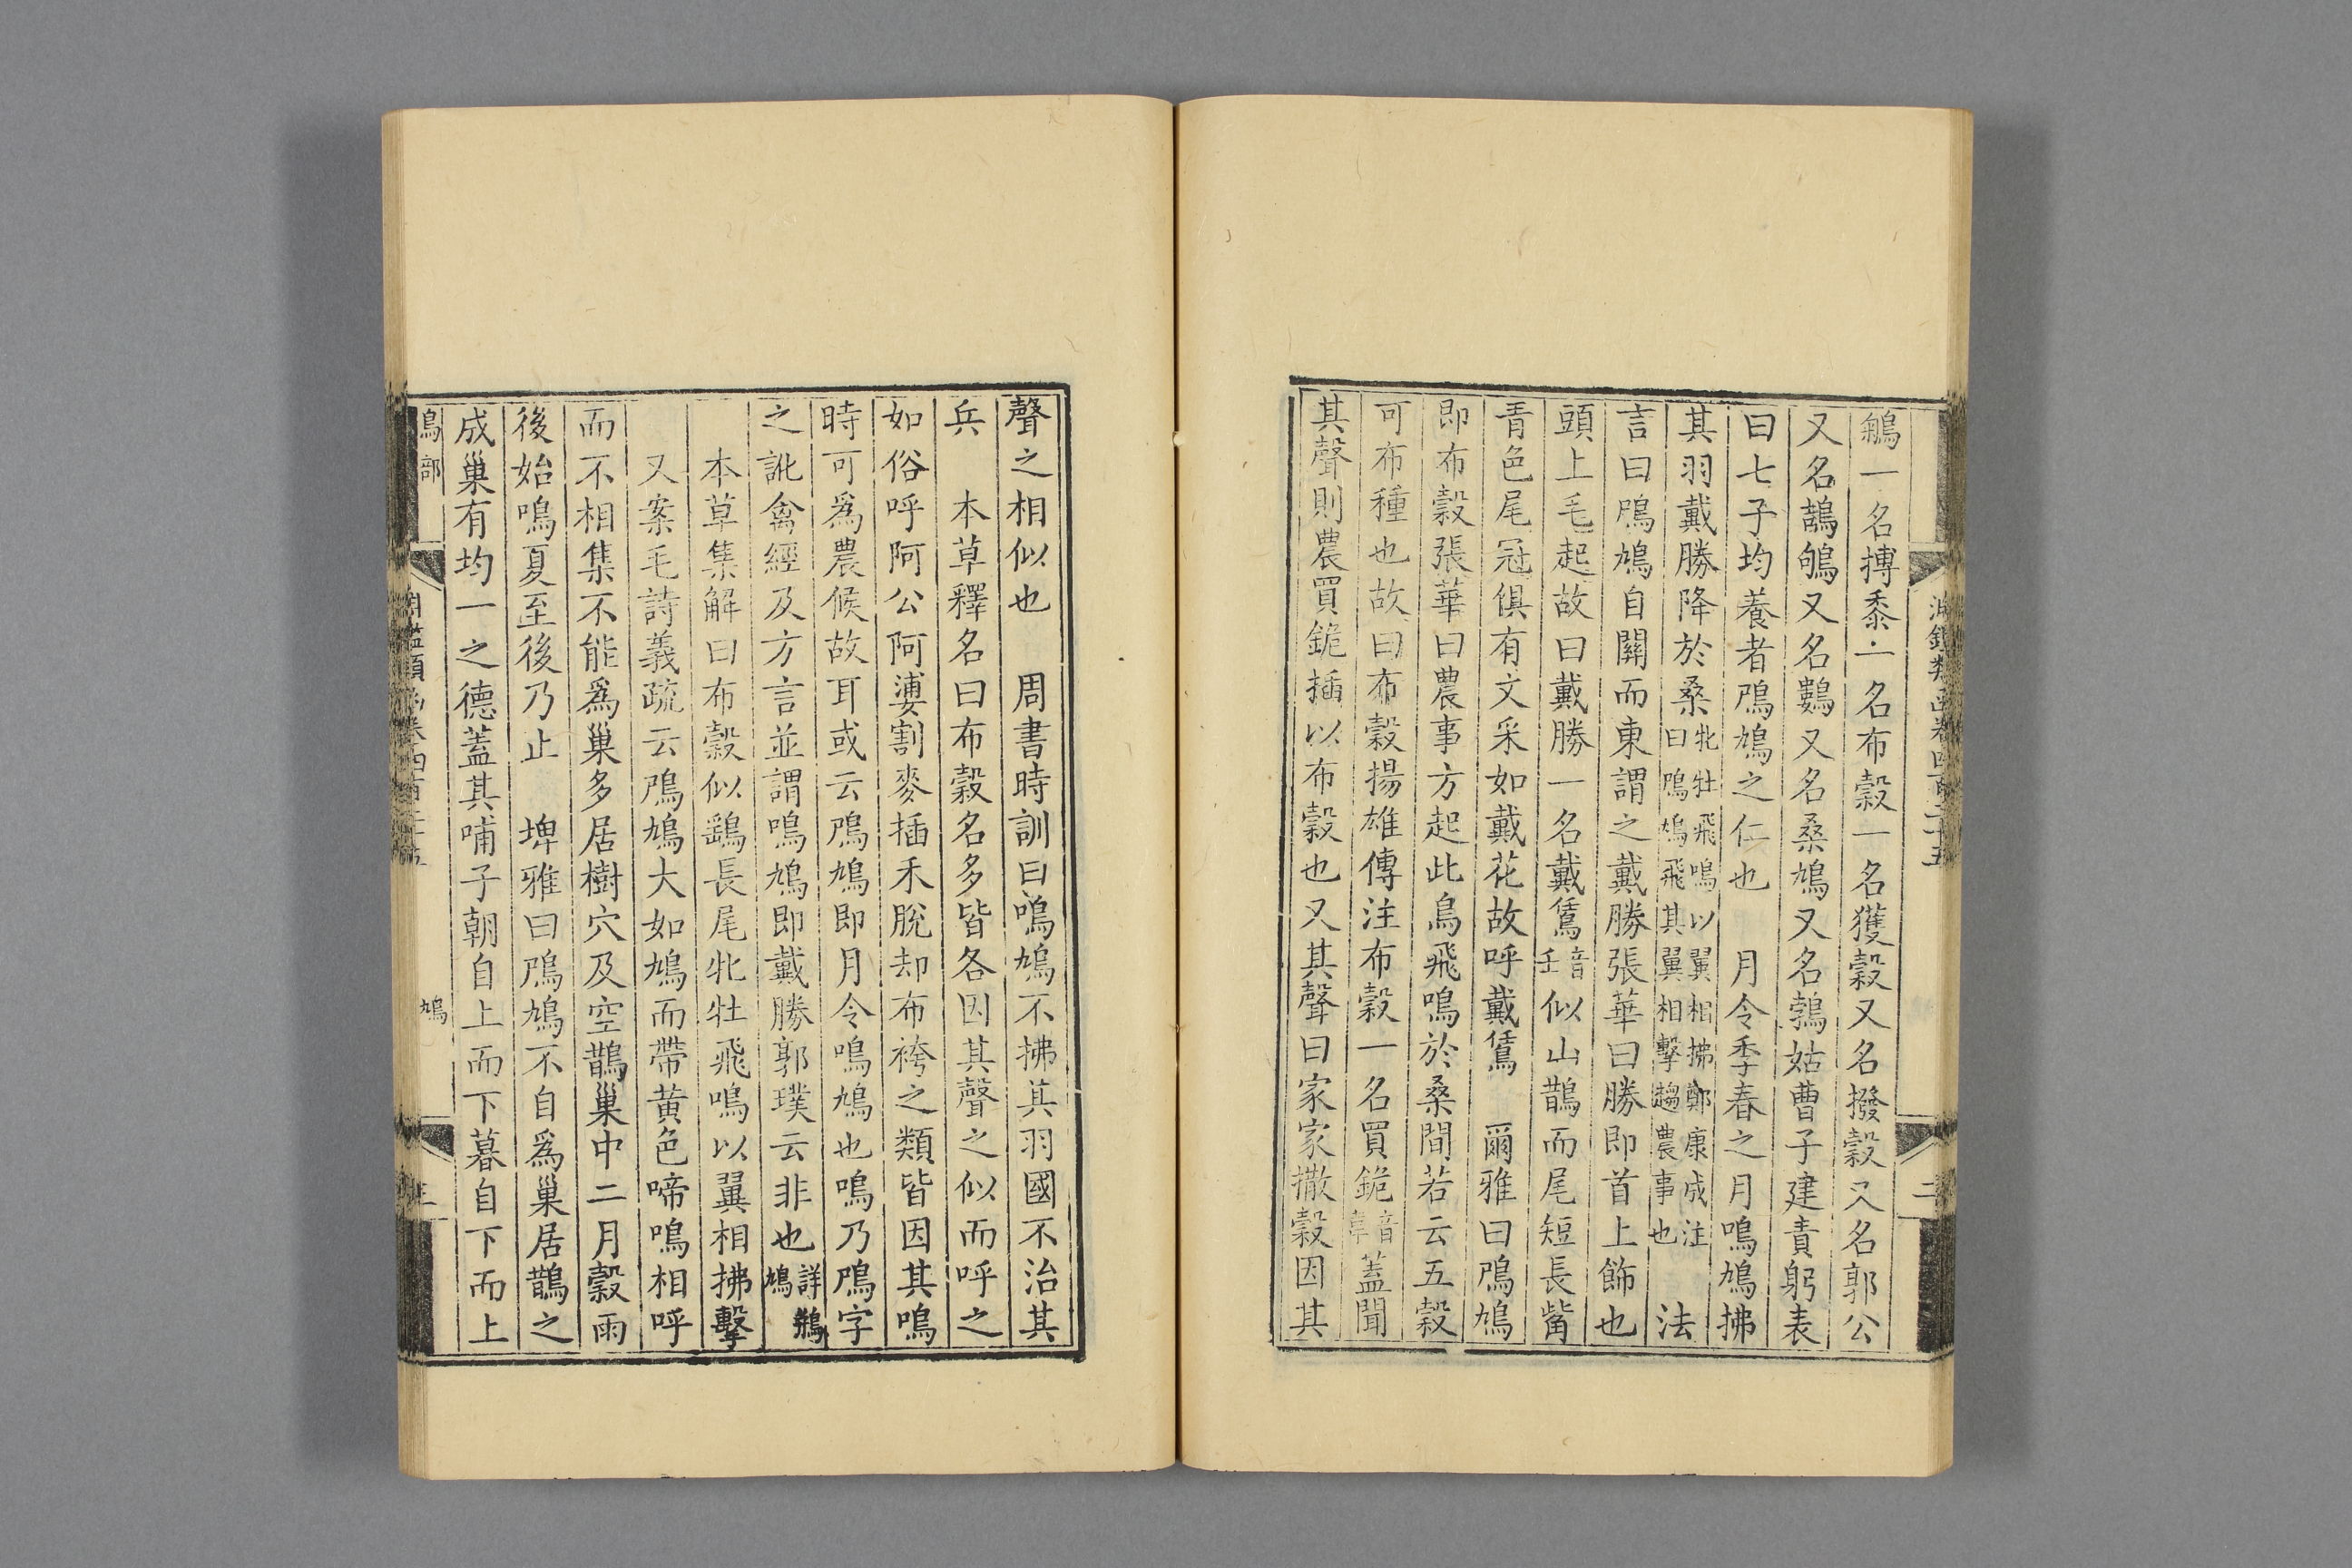 淵鑑類函卷四百二十五
二
鵴一名搏黍一名布穀一名獲穀又名撥穀又名郭公
又名鵲鴝又名鷜又名桑鳩又名鶷姑曹子建責躬表
曰七子均養者鳲鳩之仁也　月令季春之月鳴鳩拂
其羽戴勝降於桑牝牡飛鳴以翼相拂鄭康成注曰鳴鳩飛其翼相擊趨農事也　法
言曰鳲鳩自關而東謂之戴勝張華曰勝即首上飾也
頭上毛起故曰戴勝一名戴鵀音壬似山鵲而尾短長觜
青色尾冠俱有文采如戴花故呼戴鵀　爾雅曰鳲鳩
即布穀張華曰農事方起此鳥飛鳴於桑間若云五穀
可布種也故曰布穀揚雄傳注布穀一名買䤥音韋蓋聞
其聲則農買䤥插以布穀也又其聲曰家家撒穀因其
聲之相似也　周書時訓曰鳴鳩不拂其羽國不治其
兵　本草釋名曰布穀名多皆各因其聲之似而呼之
如俗呼阿公阿婆割麥插禾脫却布袴之類皆因其鳴
時可為農候故耳或云鳲鳩即月令鳴鳩也鳴乃鳲字
之訛禽經及方言並謂鳴鳩即戴勝郭璞云非也詳鶻鳩
本草集解曰布穀似鷂長尾牝牡飛鳴以翼相拂擊
又案毛詩義疏云鳲鳩大如鳩而帶黃色啼鳴相呼
而不相集不能為巢多居樹穴及空鵲巢中二月穀雨
後始鳴夏至後乃止　埤雅曰鳲鳩不自為巢居鵲之
成巢有均一之德蓋其哺子朝自上而下暮自下而上
鳥部
鳩